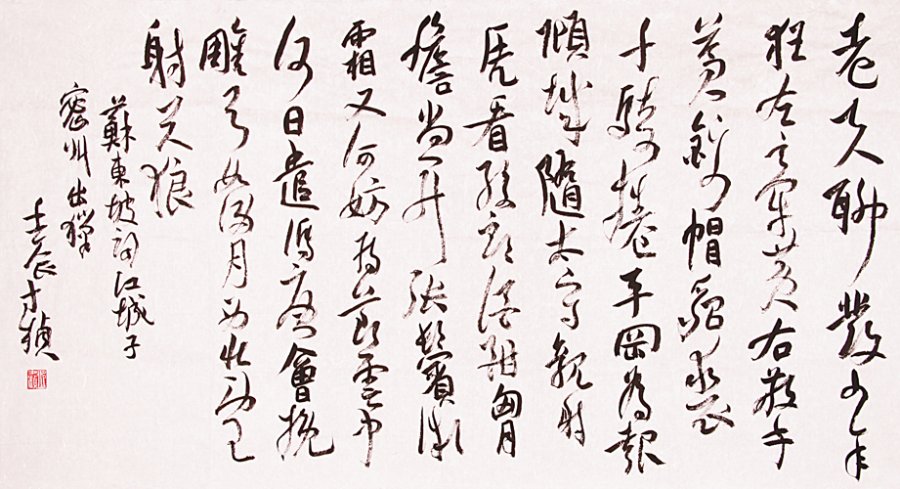 老夫聊發少年
狂左牽黃右擎
蒼錦帽貂裘
千騎捲平岡為報
傾城隨太守親射
虎看孫郎酒酣胸
膽尚開張鬢微
霜又何妨持節雲中
何日遣馮唐會挽
雕弓如滿月西北望
射天狼
蘇東坡詞江城子
密州出獵
壬辰才楨